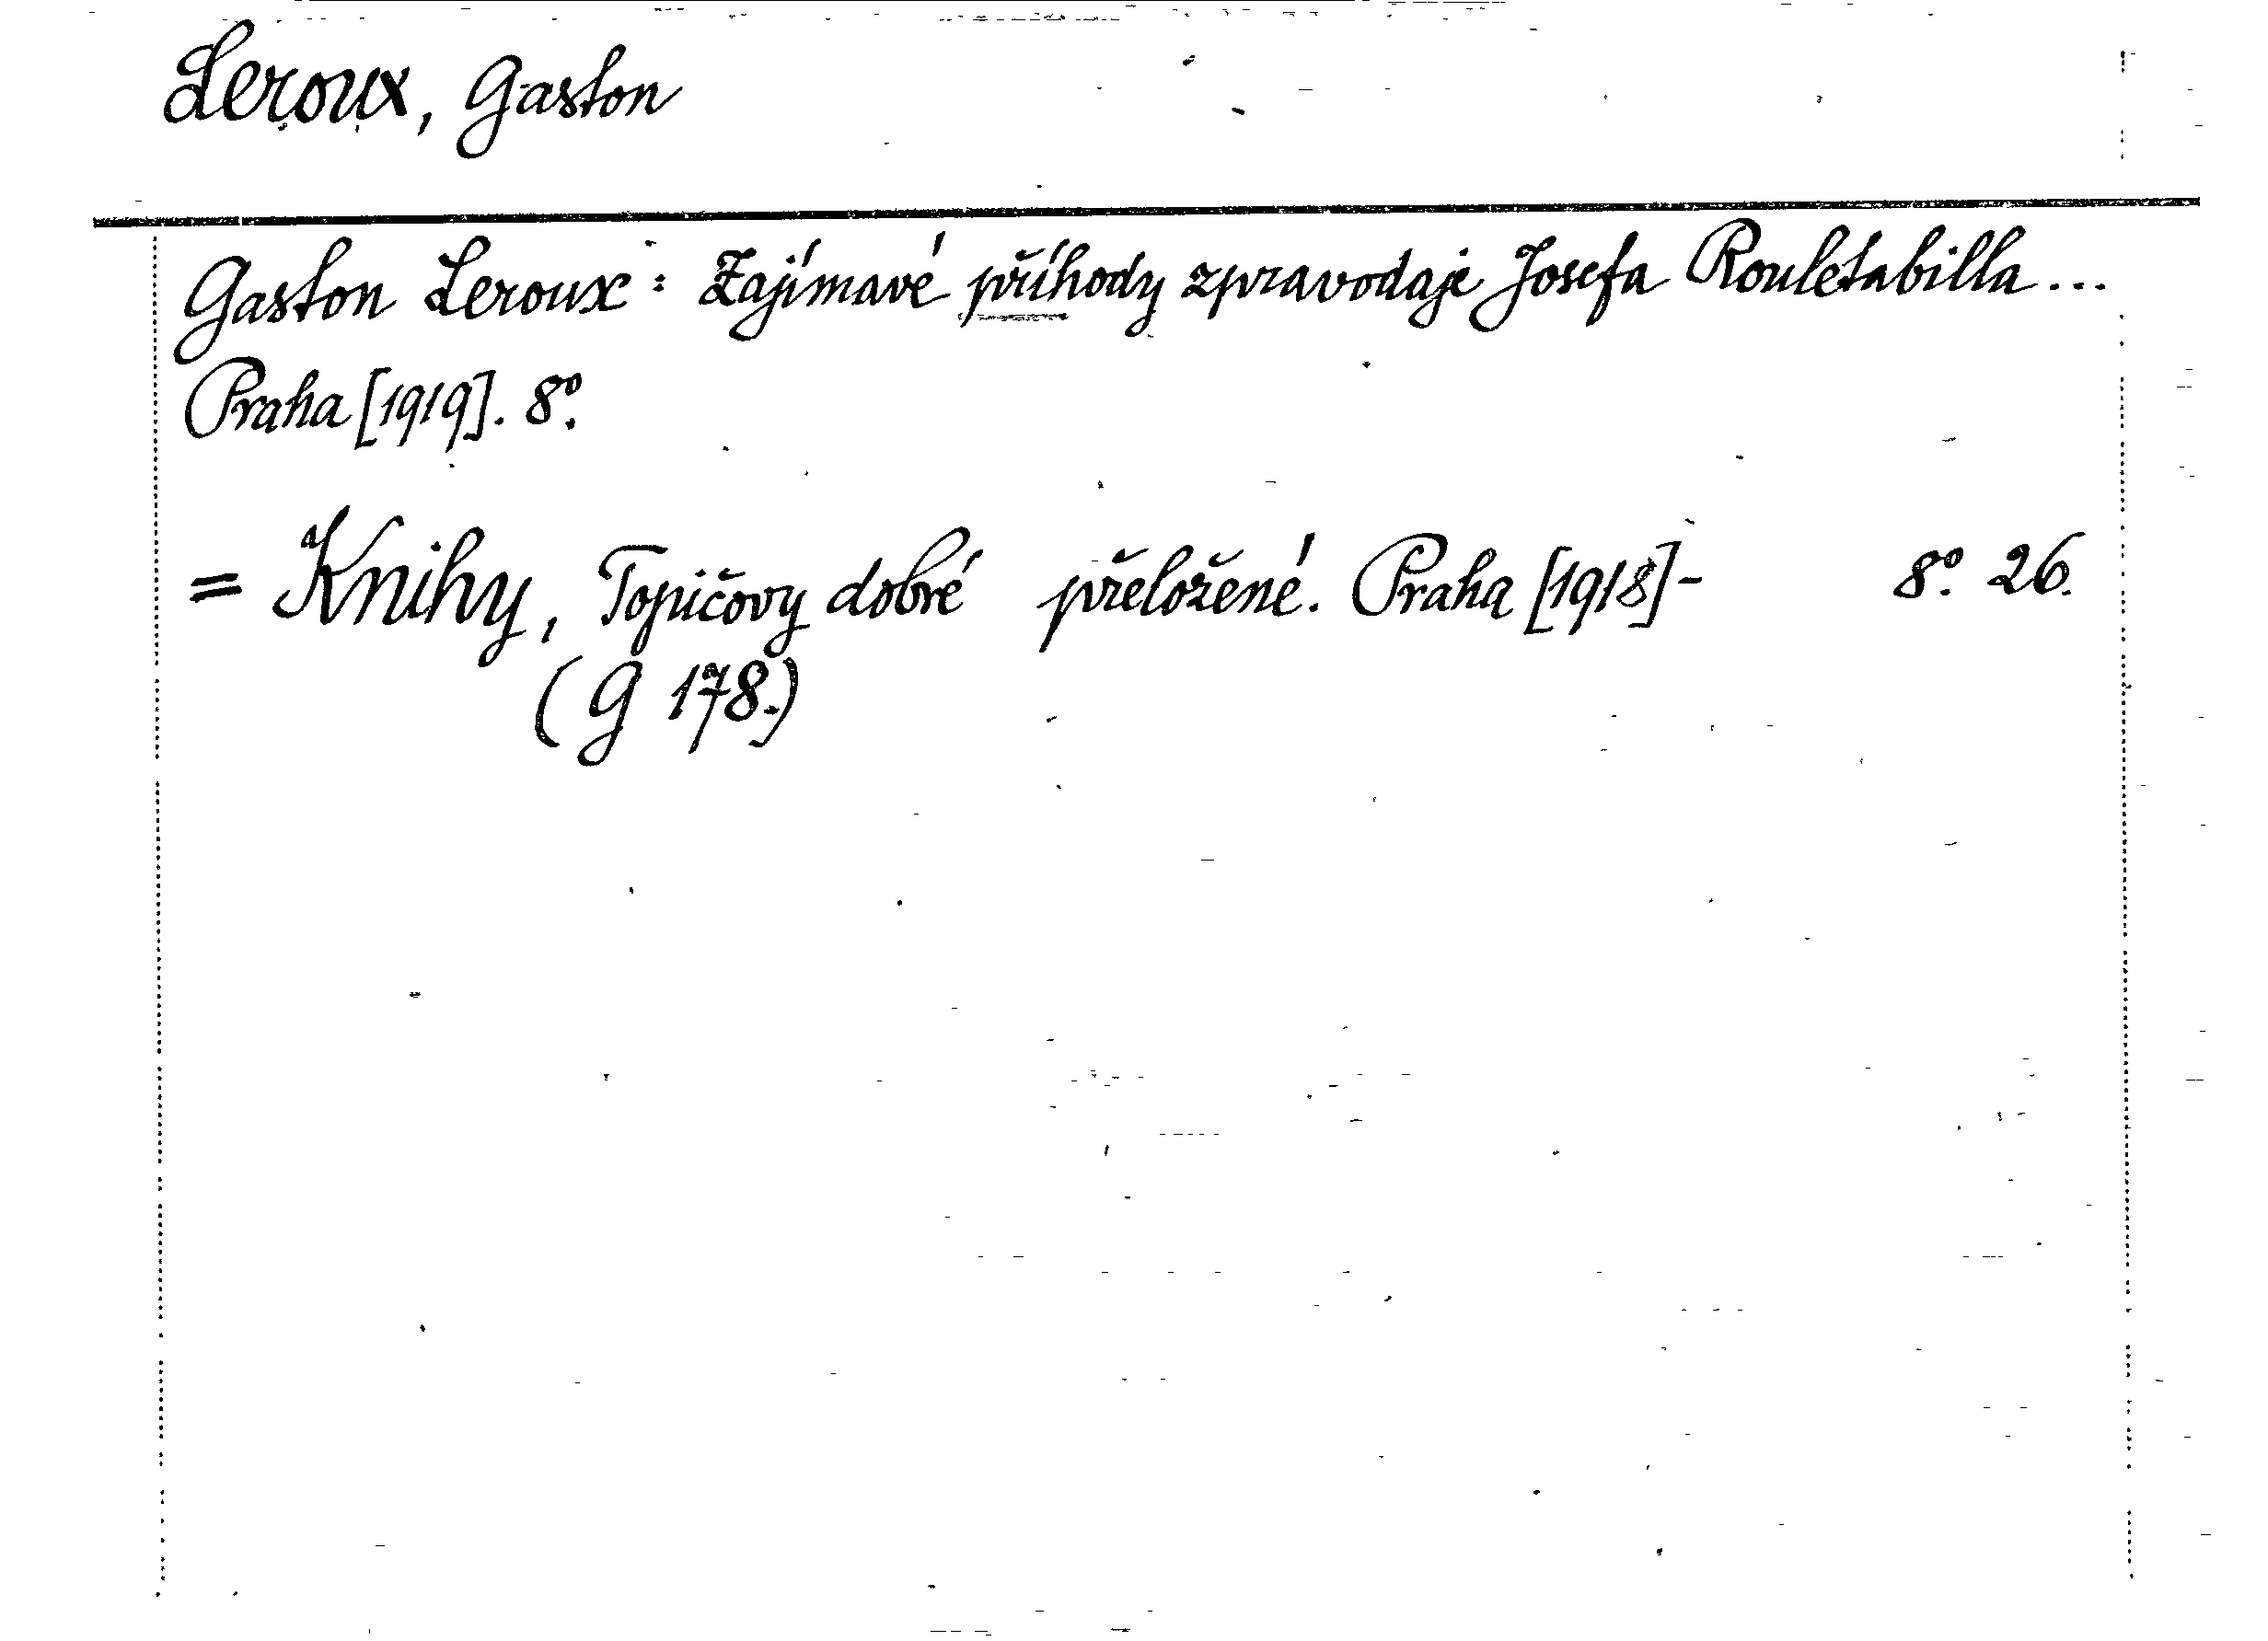 Leroux, Gaston
Gaston Leroux: Zajímavé příhody zpravodaje Josefa Rouletabilla...
Praha [1919]. 8º.
= Knihy, Topičovy dobré přeložené. Praha [1918]- 8º. 26.
(G 178.)